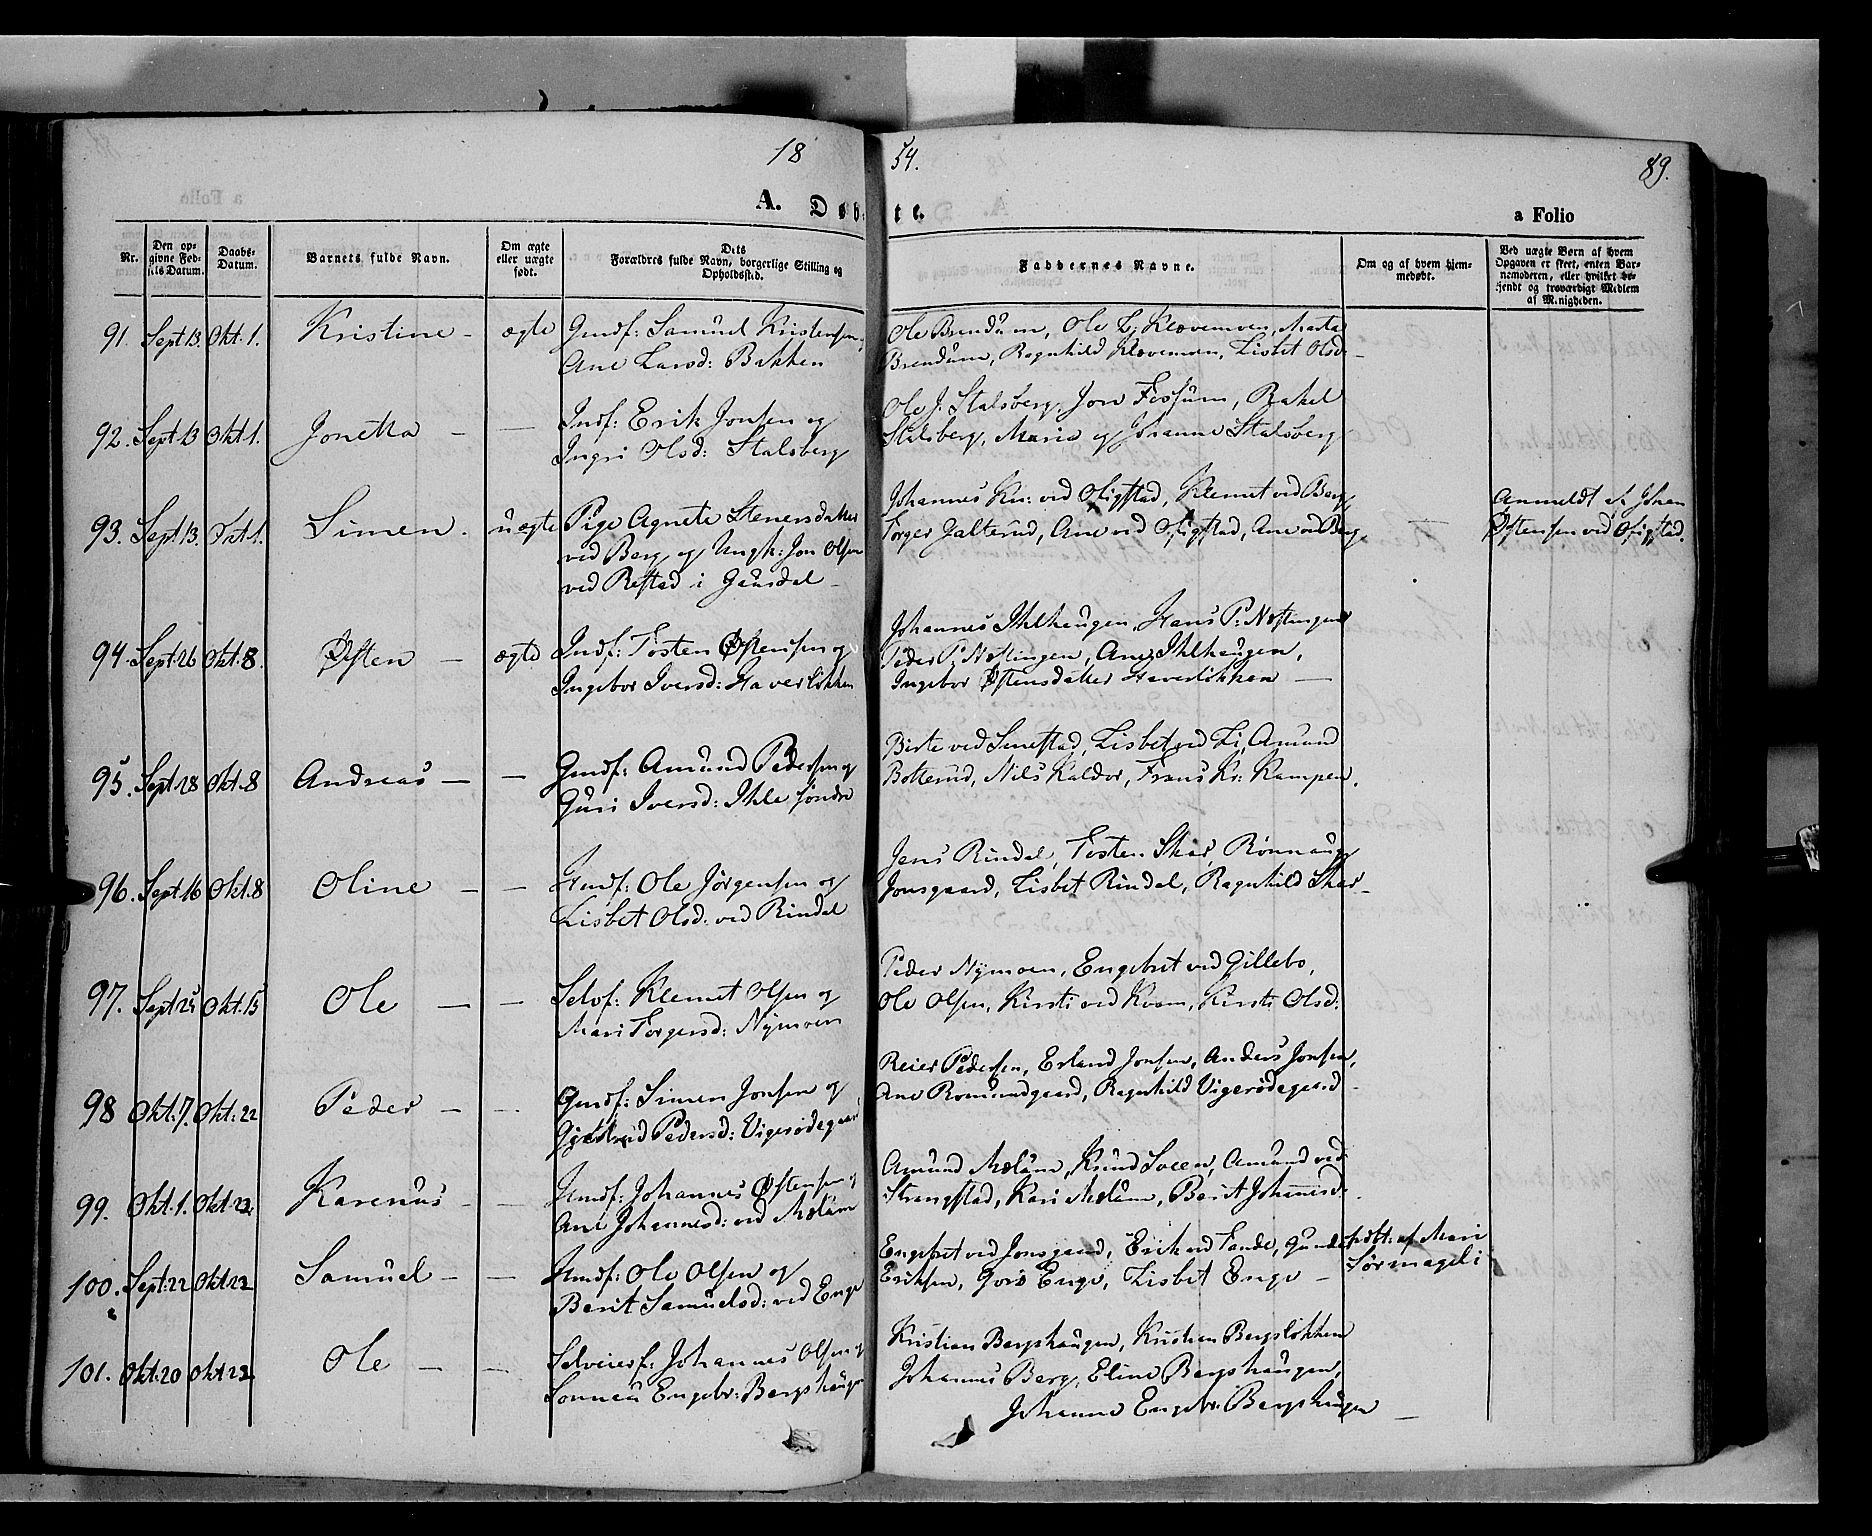 18 54. 89.
A. Døbte. a Folio
Nr. | Den opgivne Fødsels Datum. | Daabs-Datum. | Barnets fulde Navn. | Om ægte eller uægte født. | Dets Forældres fulde Navn, borgerlige Stilling og Opholdssted. | Faddernes Navne. | Om og af hvem hjemmedøbt. | Ved uægte Børn af hvem Opgaven er skeet, enten Barnemoderen, eller hvilket bekjendt og troværdigt Medlem af Menigheden.
91. Sept 13. Okt. 1. Kristine – ægte Gmdf: Samuel Kristensen, Ole Brendum, Ole L. Klovemoen, Marta
Ane Larsd: Bakken Brendum, Ragnhild Klovemoen, Lisbet Olsd. –
92. Sept. 13 Okt. 1. Jonetta – – Indf: Erik Jonsen og Ole J. Stalsberg, Jon Fossum, Rakel
Ingri Olsd: Stalsberg Stalsberg, Marie og Johanne Stalsberg
93. Sept. 13. Okt. 1. Simen. uægte Pige Agnete Stenersdatter Johannes Kr: ved Ofigstad, Klemet ved Berg, Anmeldt af Johan
ved Berg og Ungk: Jon Olsen Torger Jalterud, Ane ved Ofigstad, Ane ved Berg. – Østensen ved Ofigstad.
ved Refstad i Gausdal –
94. Sept. 26 Okt. 8. Østen – ægte Indf: Tosten Østensen og Johannes Ihlhaugen, Hans P. Nostingen
Ingebor Iversd: Haverlikken Peder P. Nostingen, Ane Ihlhaugen,
Ingebor Østensdatter Haverlikken –
95. Sept. 28 Okt. 8 Andreas – – Gmdf: Amund Pedersen og Birte ved Senestad, Lisbet ved Li, Amund
Guri Iversd: Ihle søndre Botterud, Nils Kaldor, Frans Kr: Kampen.
96. Sept. 16 Okt. 8 Oline – – Hmdf: Ole Jørgensen og Jens Rindal, Tosten Skar, Rønnaug
Lisbet Olsd: ved Rindal Jonsgaard, Lisbet Rindal, Ragnhild Skar –
97. Sept 25 Okt. 15 Ole – – Selvf: Klemet Olsen og Peder Nymoen, Engebret ved Gillebo,
Mari Torgersd: Nymoen Ole Olsen, Kirsti ved Kvam, Kirsti Olsd:
98 Okt. 7. Okt. 22 Peder – – Gmdf: Simen Jonsen og Reier Pedersen, Erland Jonsen, Anders Jonsen,
Gjertrud Pedersd: Vigerødegaard Ane Romundgaard, Ragnhild Vigerødegaard –
99. Okt. 1. Okt. 22. Karenus – – Hmdf: Johannes Østensen og Amund Mælum, Knud Sveen, Amund ved
Ane Johannesd: ved Mælum Strangstad, Kari Mælum, Berit Johannesd.
100. Sept. 22 Okt 22 Samuel – – Hmdf: Ole Olsen og Engebret ved Jonsgaard, Erik ved Tande, Gunder hdbt: af Mari
Berit Samuelsd: ved Enge Eriksen, Goro Enge, Lisbet Enge – Sørmageli
101. Okt. 20 Okt 22 Ole – – Selveierf: Johannes Olsen og Kristian Bergshaugen, Kristian Bergsløkken
Sonneu Engebr: Bergshaugen Johannes Berg, Eline Bergshaugen,
Johanne Engebr: Bergshaugen –